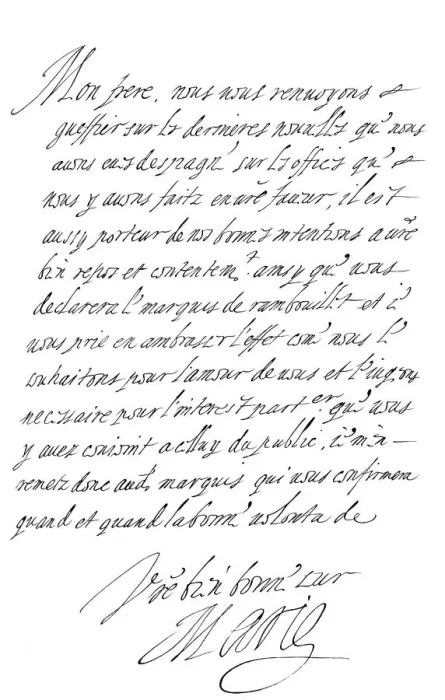 Mon frere, nous vous renvoyons
gueffier sur les dernieres nouvelles que nous
avons eues despagne sur les offices que
nous y avons faitz en vre faveur, il est
aussy porteur de nos bonnes intentions a vre
bien repos et contentemt. ainsy que vous
declarera le marquis de rambouillet et ie
vous prie en ambraser l'effet come nous le
souhaitons pour l'amour de vous et l'iugeons
necessaire pour l'interest parter. que vous
y avez conioint a celluy du public, ie m'en
remetz donc aud. marquis qui vous confirmera
quand et quand la bonne volonta de
Vre bien bonne seur
Marie